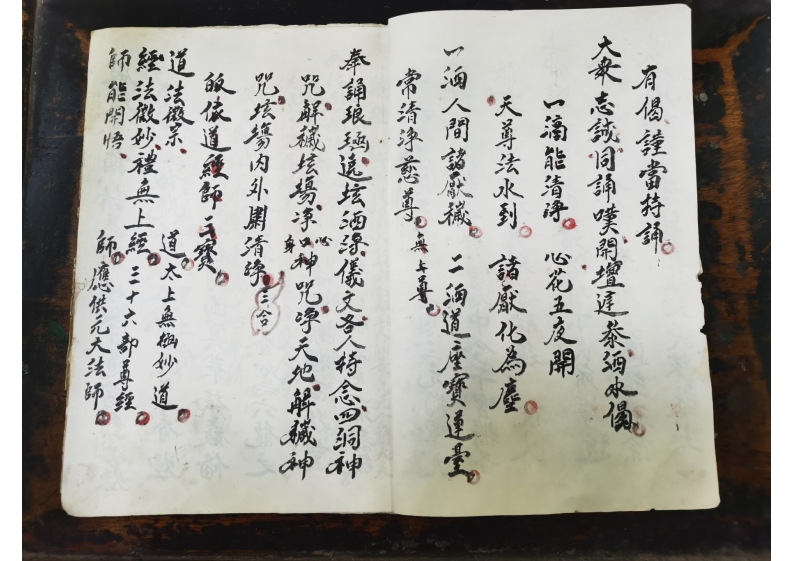 有偈謹當持誦
大衆志誠同誦嘆開壇筵恭洒水偈
一滴能清淨　心花五度開
天尊法水到　諸厭化為塵
一洒人間諸厭穢　二洒道座寶蓮臺
常清淨慈尊　無上尊
奉誦琅函遶坛洒淨儀文各人持念四洞神
咒解穢坛場凈心口身神咒淨天地解穢神
咒坛場內外肅清淨　三合
皈依道經師三寳
道法微宗　道太上無極妙道
經法微妙禮無上經三十六部尊經
師能開悟　師應供元大法師